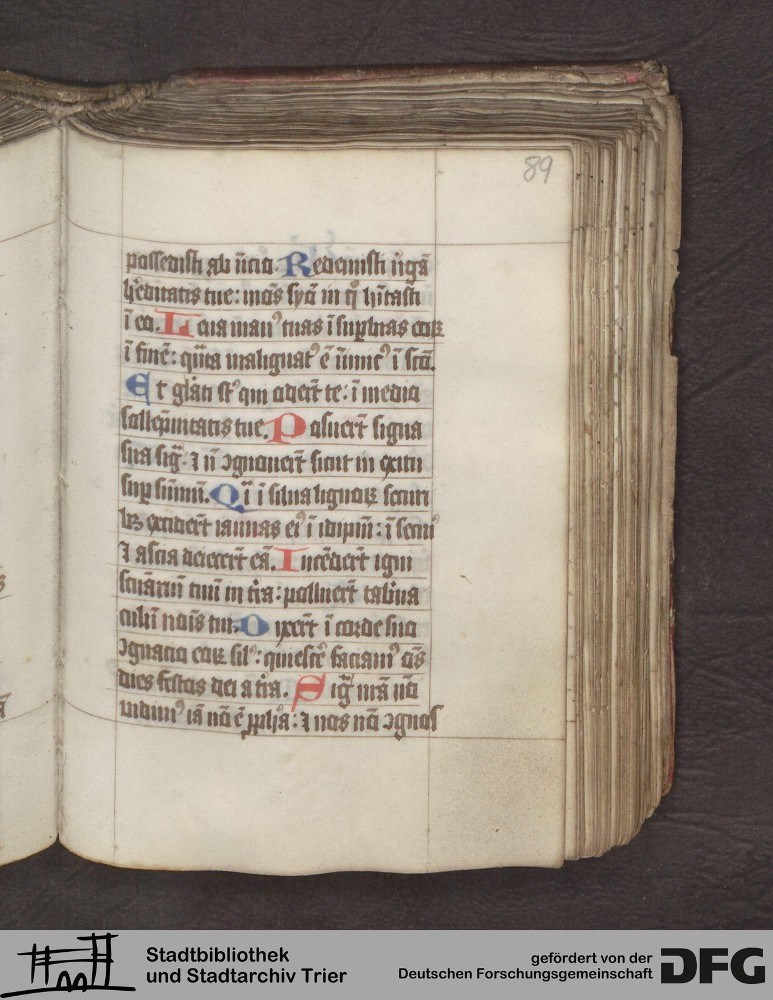 89
possedisti ab iīcio. Redemisti ūigā
h̄editatis tue: mōs syō in q̊ hītasti
ī eo. Leua man⁹ tuas ī suꝑbias eoꝝ
ī finē: qūta malignat⁹ ē iīmic⁹ ī scō.
Et gl̄ati st̄ qui oder̄t te: ī medio
sollēpnitatis tue. Posuer̄t signa
sua sig̅. ⁊ ñ ꝯgnouer̄t sicut in exitu
suꝑ sūmū. Qⁱ ī silua lignoꝝ securi
bꝫ exrider̄t ianuas ei⁹ ī idip̄m: ī secur̉
⁊ ascia deiecer̄t eā. Incēder̄t igni
scūariū tuū in tr̄a: polluer̄t tab̄na
culū nōis tui. Dixer̄t ī corde suo
ꝯgnacio eoꝝ sil̉: quiescē faciam⁹ ōs
dies festos dei a tr̄a. Sig̅ nr̄a nō
uidim⁹ iā nō ē ꝓph̄a: ⁊ nos nō ꝯgnos
Stadtbibliothek
und Stadtarchiv Trier
gefördert von der
Deutschen Forschungsgemeinschaft
DFG